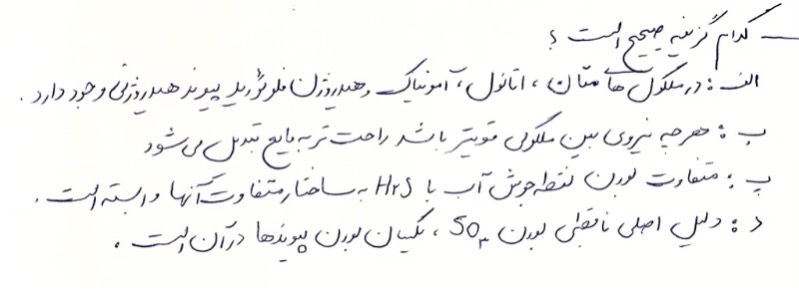 ـ کدام گزینه صحیح است؟
الف: در ملکول های متان، اتانول، آمونیاک و هیدروژن فلوئورید پیوند هیدروژنی وجود دارد.
ب: هرچه نیروی بین ملکولی قویتر باشد راحت تر به مایع تبدیل می شود
پ: متفاوت بودن نقطه جوش آب با H₂S به ساختار متفاوت آنها وابسته است.
د: دلیل اصلی ناقطبی بودن SO₃، یکسان بودن پیوندها در آن است.